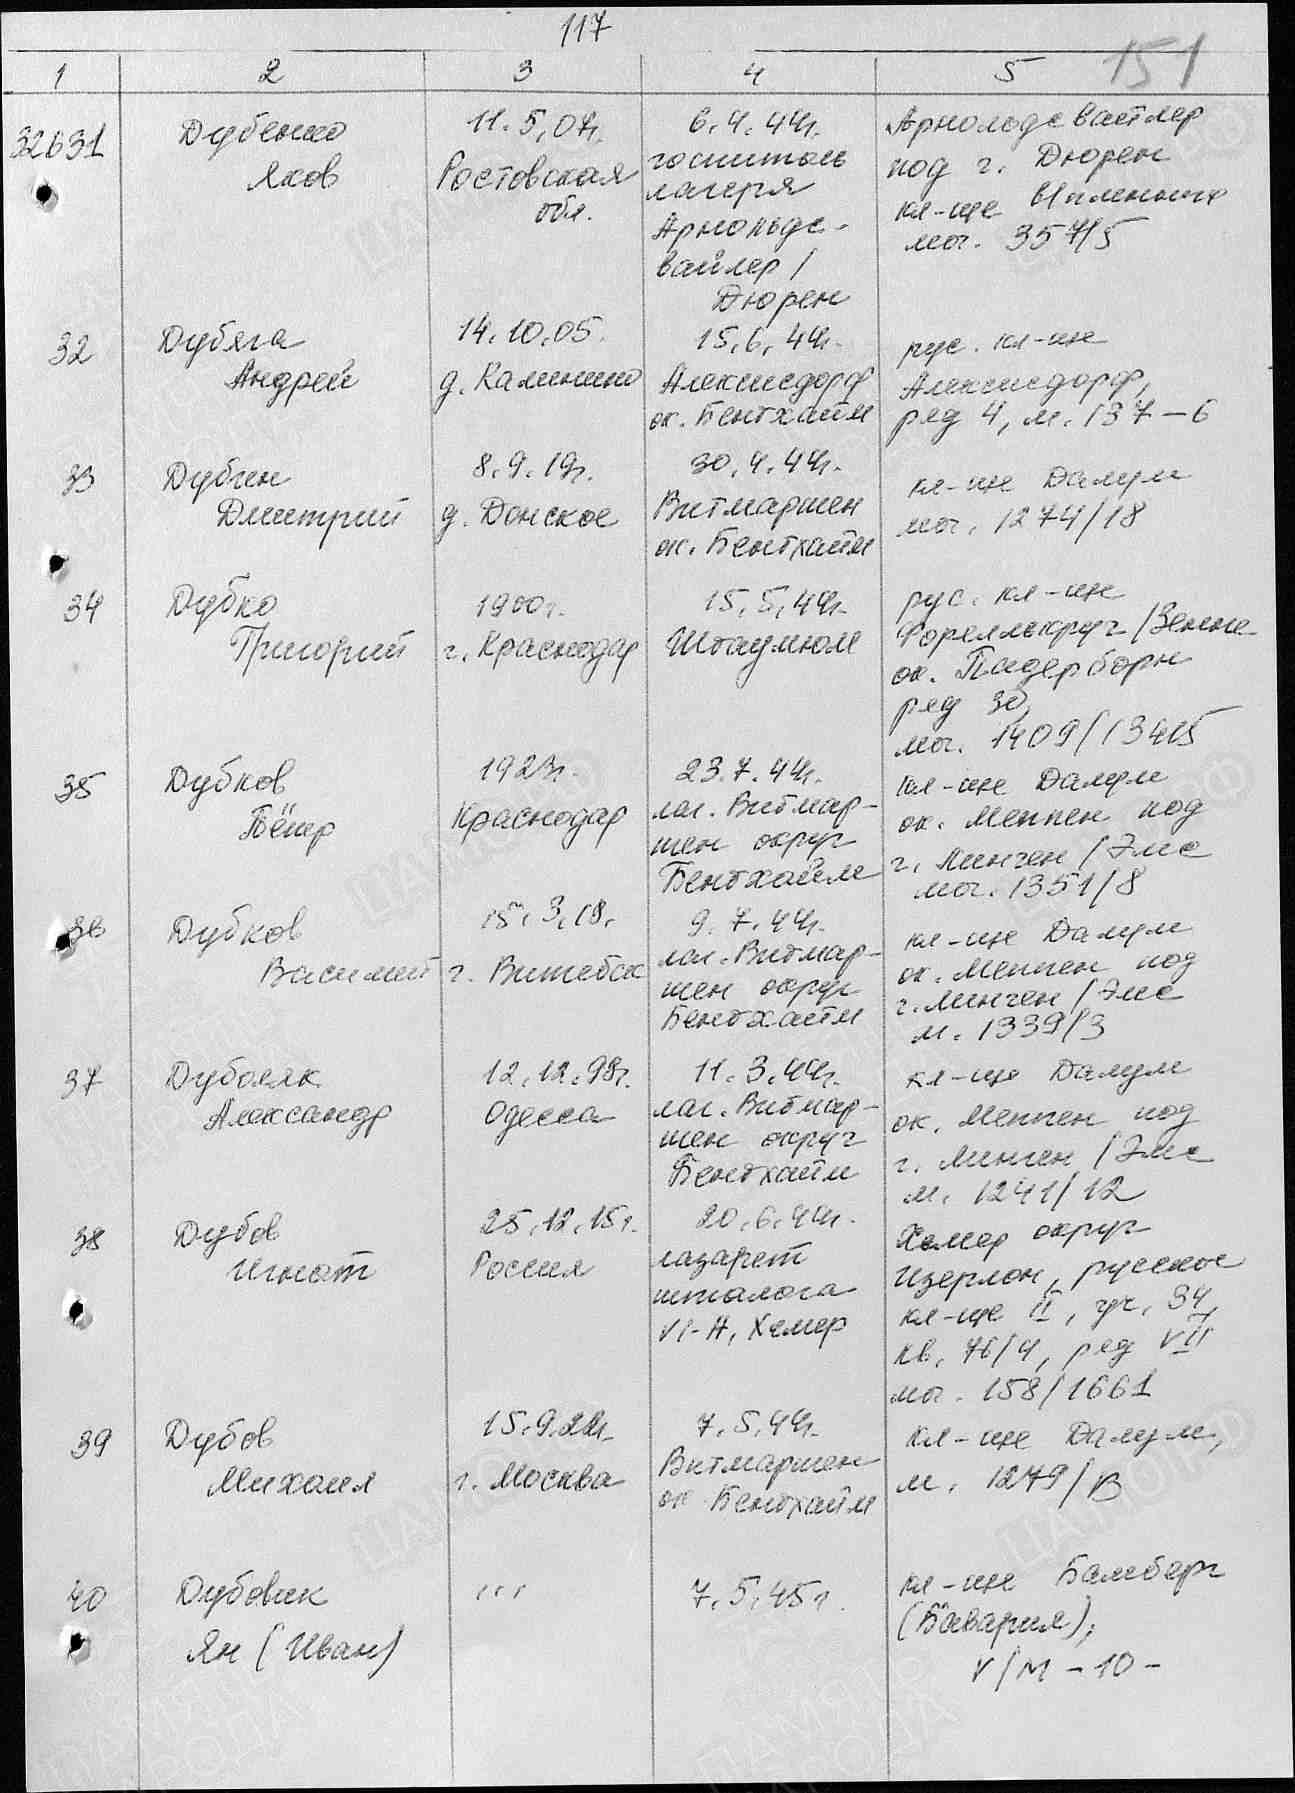 117
151
1 2 3 4 5
32631
Дубенко
Яков
11.5.07г.
Ростовская
обл.
6.4.44г.
госпиталь
лагеря
Арнольдс-
вайлер /
Дюрен
Арнольдсвайлер
под г. Дюрен
кл-ще
мог. 357/5
32
Дубяга
Андрей
14.10.05.
д. Калинино
15.6.44г.
Алексисдорф
ок. Бентхайм
рус. кл-ще
Алексисдорф,
ряд 4, м. 137-6
33
Дубген
Дмитрий
8.9.19г.
д. Донское
30.4.44г.
Витмаршен
ок. Бентхайм
кл-ще Далум
мог. 1274/18
34
Дубко
Григорий
1900г.
г. Краснодар
15.5.44г.
Штаумюле
рус. кл-ще
Фореллькруг/Зенне
ок. Падерборн
ряд 30,
мог. 1409/13415
35
Дубков
Пётр
1923г.
Краснодар
23.7.44г.
лаг. Витмар-
шен округ
Бентхайм
кл-ще Далум
ок. Меппен под
г. Линген/Эмс
мог. 1351/8
36
Дубков
Василий
15.3.18.
г. Витебск
9.7.44г.
лаг. Витмар-
шен округ
Бентхайм
кл-ще Далум
ок. Меппен под
г. Линген/Эмс
м. 1339/3
37
Александр
12.12.98г.
Одесса
11.3.44г.
лаг. Витмар-
шен округ
Бентхайм
кл-ще Далум
ок. Меппен под
г. Линген/Эмс
м. 1241/12
38
Дубов
Игнат
25.12.15г.
Россия
20.6.44г.
лазарет
шталага
VI-А, Хемер
Хемер округ
Изерлон, русское
кл-ще II, уч. 34,
кв. 76/4, ряд VII
мог. 158/1661
39
Дубов
Михаил
15.9.22г.
г. Москва
7.5.44г.
Витмаршен
ок. Бентхайм
кл-ще Далум,
м. 1279/В
40
Дубовик
Ян (Иван)
...
7.5.45г.
кл-ще Бамберг
(Бавария);
V/М-10-